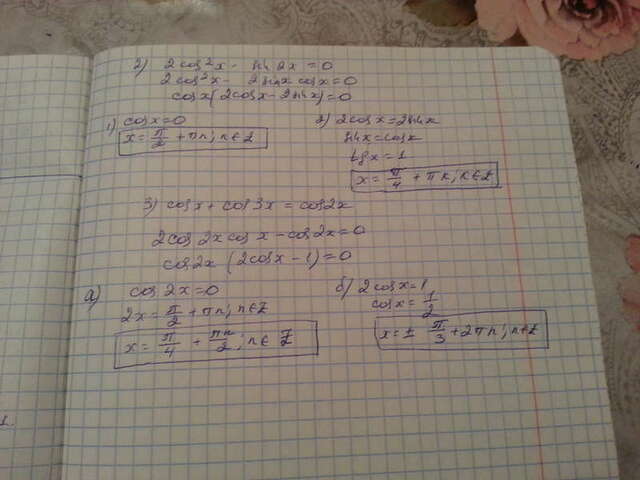 2) 2cos²x - sin 2x = 0
2cos²x - 2sinx cosx = 0
cosx(2cosx - 2sinx) = 0
1) cosx = 0
x = π/2 + πn; n∈Z
2) 2cosx = 2sinx
sinx = cosx
tgx = 1
x = π/4 + πn; n∈Z
3) cosx + cos3x = cos2x
2cos2x cosx - cos2x = 0
cos2x (2cosx - 1) = 0
а) cos2x = 0
2x = π/2 + πn; n∈Z
x = π/4 + πn/2; n∈Z
б) 2cosx = 1
cosx = 1/2
x = ± π/3 + 2πn; n∈Z